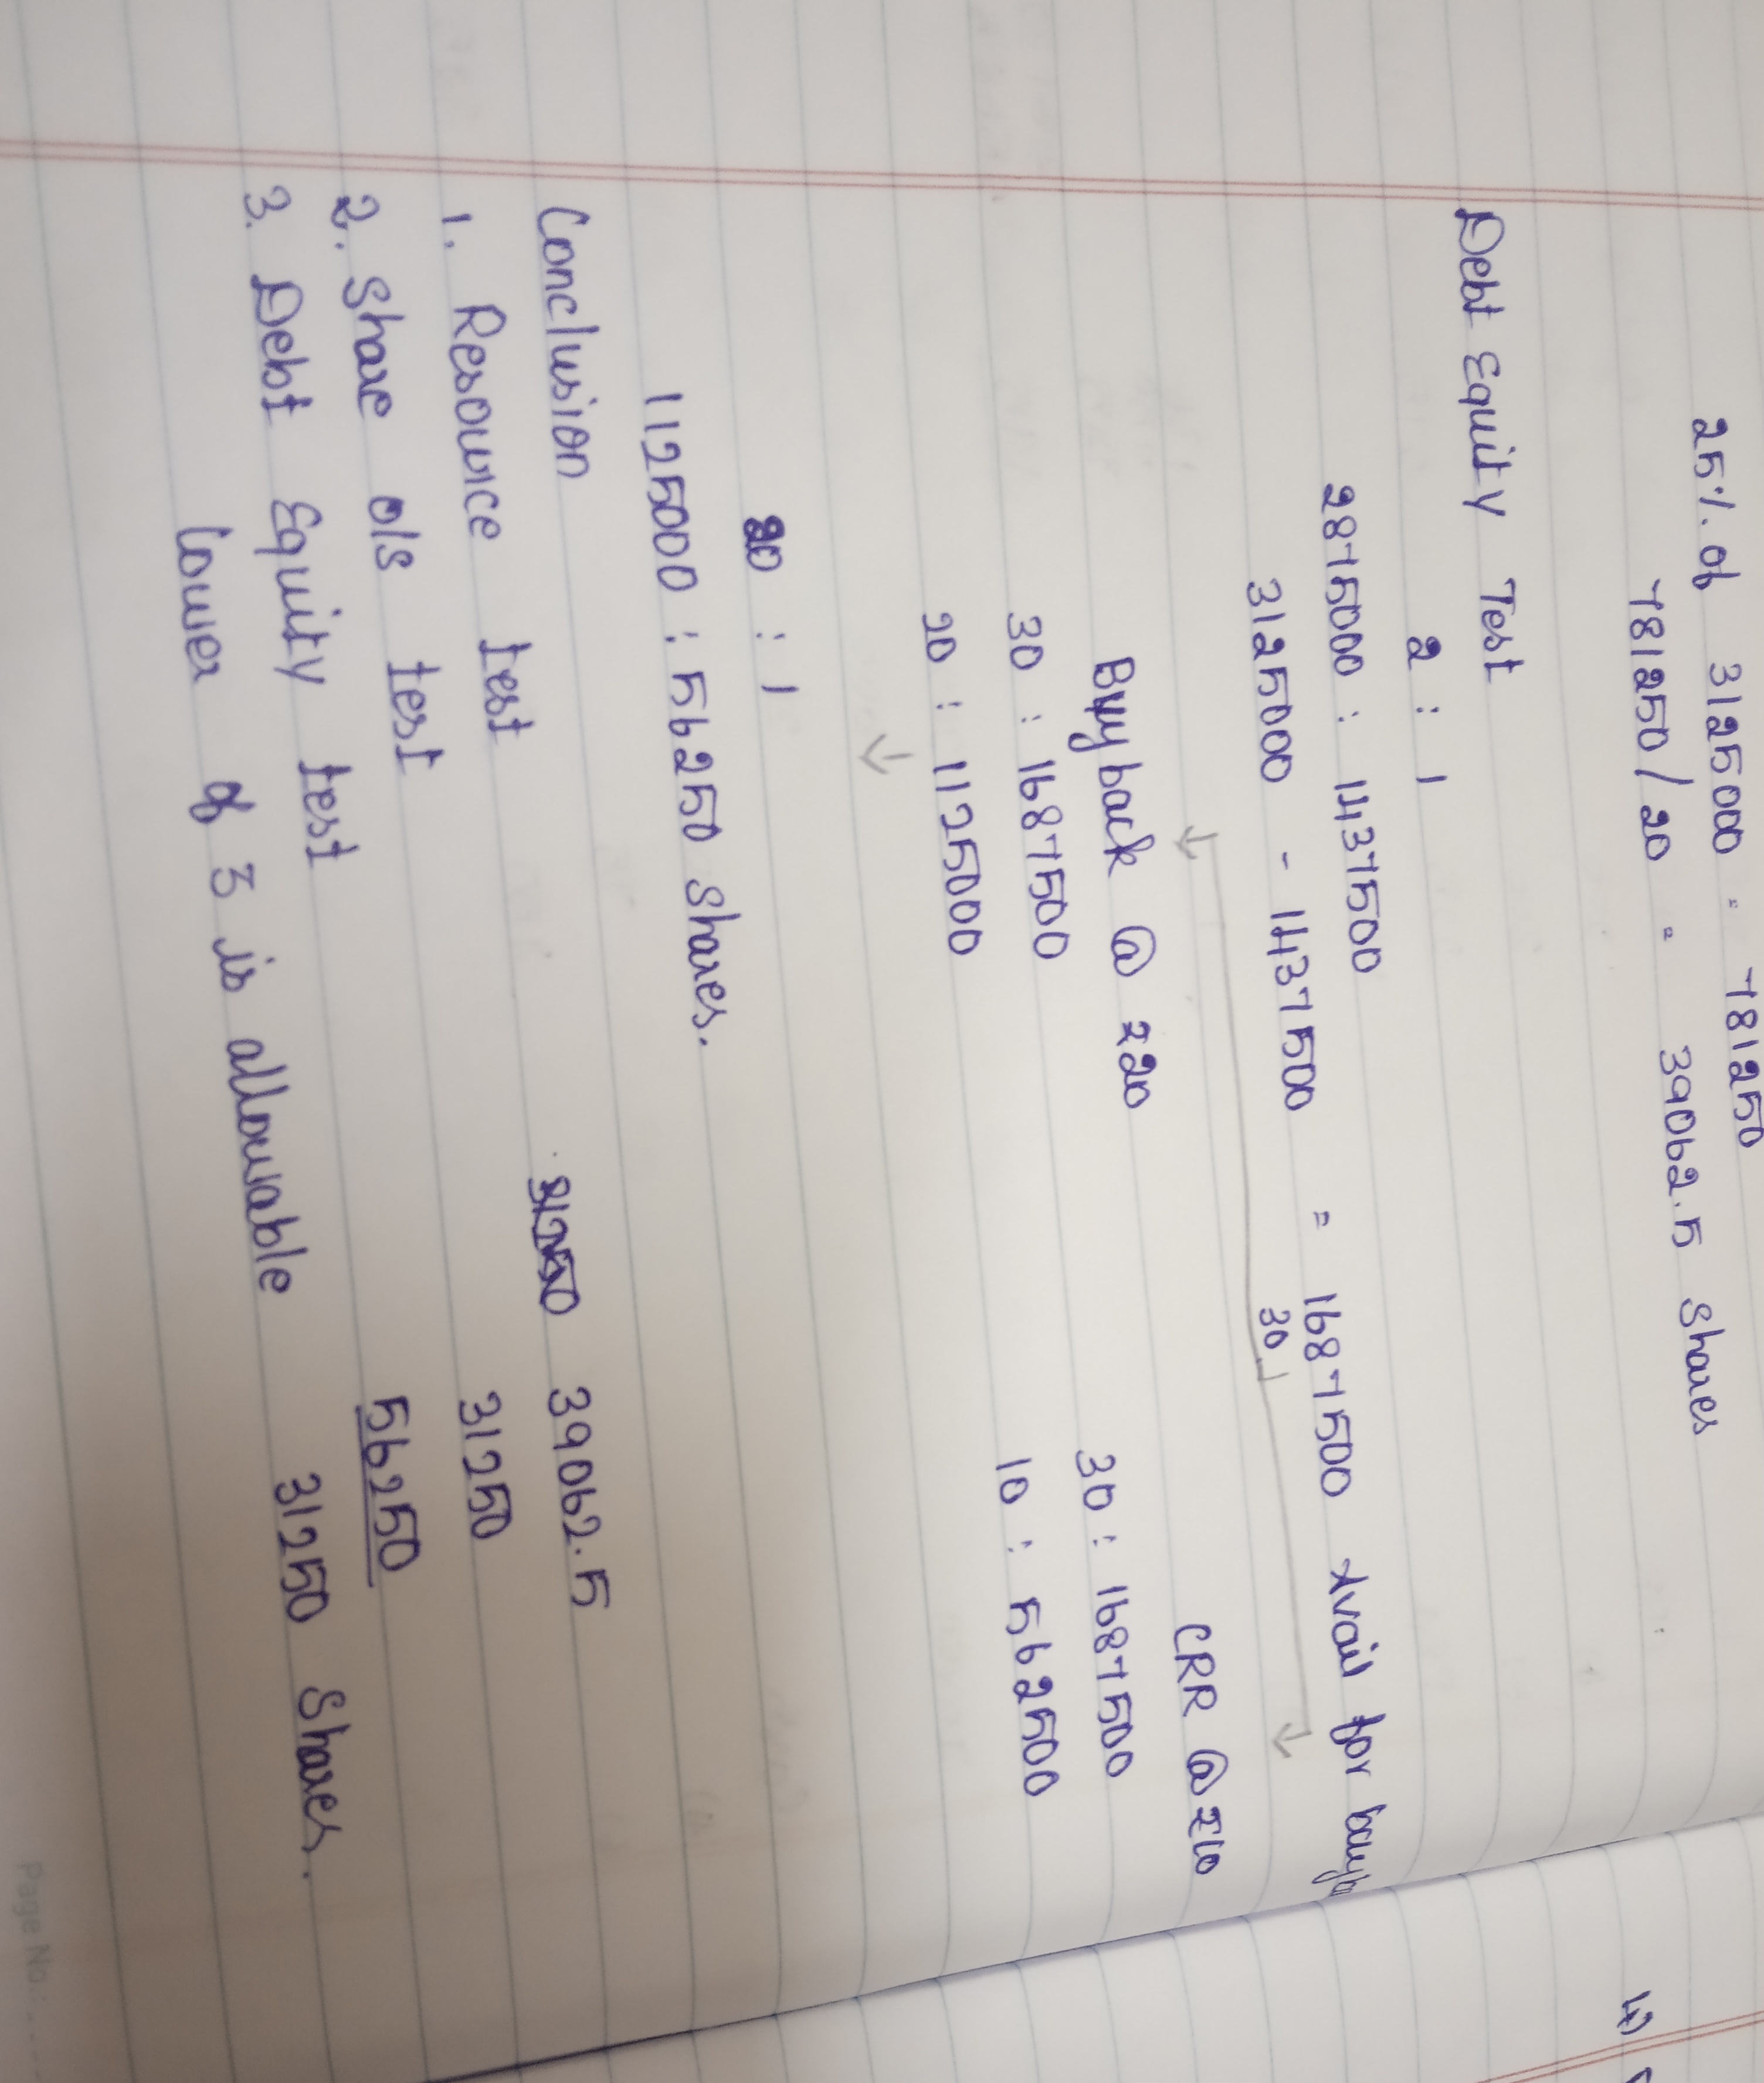 25% of 3125000 = 781250
781250/20 = 39062.5 shares
Debt Equity Test
2 : 1
2875000 : 1437500
3125000 - 1437500 = 1687500 Avail for
30
Buy back @ ₹20 CRR @ ₹10
30 : 1687500 30 : 1687500
20 : 1125000 10 : 562500
20 : 1
1125000 : 56250 shares.
Conclusion
1. Resource test 39062.5
2. Share o/s test 31250
3. Debt Equity test 56250
lower of 3 is allowable 31250 shares.
Page No:
4)